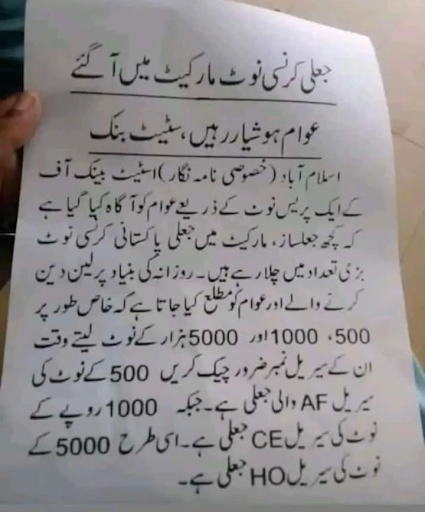 جعلی کرنسی نوٹ مارکیٹ میں آ گئے
عوام ہوشیار رہیں، سٹیٹ بنک
اسلام آباد (خصوصی نامہ نگار) اسٹیٹ بینک آف
کے ایک پریس نوٹ کے ذریعے عوام کو آگاہ کیا گیا ہے
کہ کچھ جعلساز، مارکیٹ میں جعلی پاکستانی کرنسی نوٹ
بڑی تعداد میں چلا رہے ہیں۔ روزانہ کی بنیاد پر لین دین
کرنے والے اور عوام کو مطلع کیا جاتا ہے کہ خاص طور پر
500، 1000 اور 5000 ہزار کے نوٹ لیتے وقت
ان کے سیریل نمبر ضرور چیک کریں 500 کے نوٹ کی
سیریل AF والی جعلی ہے۔ جبکہ 1000 روپے کے
نوٹ کی سیریل CE جعلی ہے۔ اسی طرح 5000 کے
نوٹ کی سیریل HO جعلی ہے۔